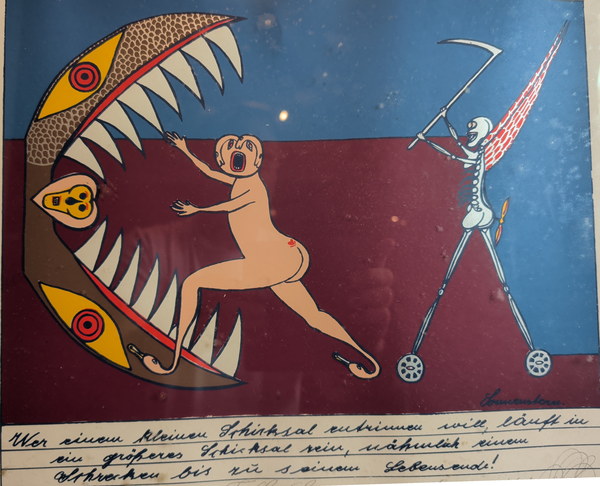 Sonnenstern
Wer einem kleinen Schicksal entrinnen will, läuft in
ein größeres Schicksal rein, nähmlich einem
Schrecken bis zu seinem Lebensende!